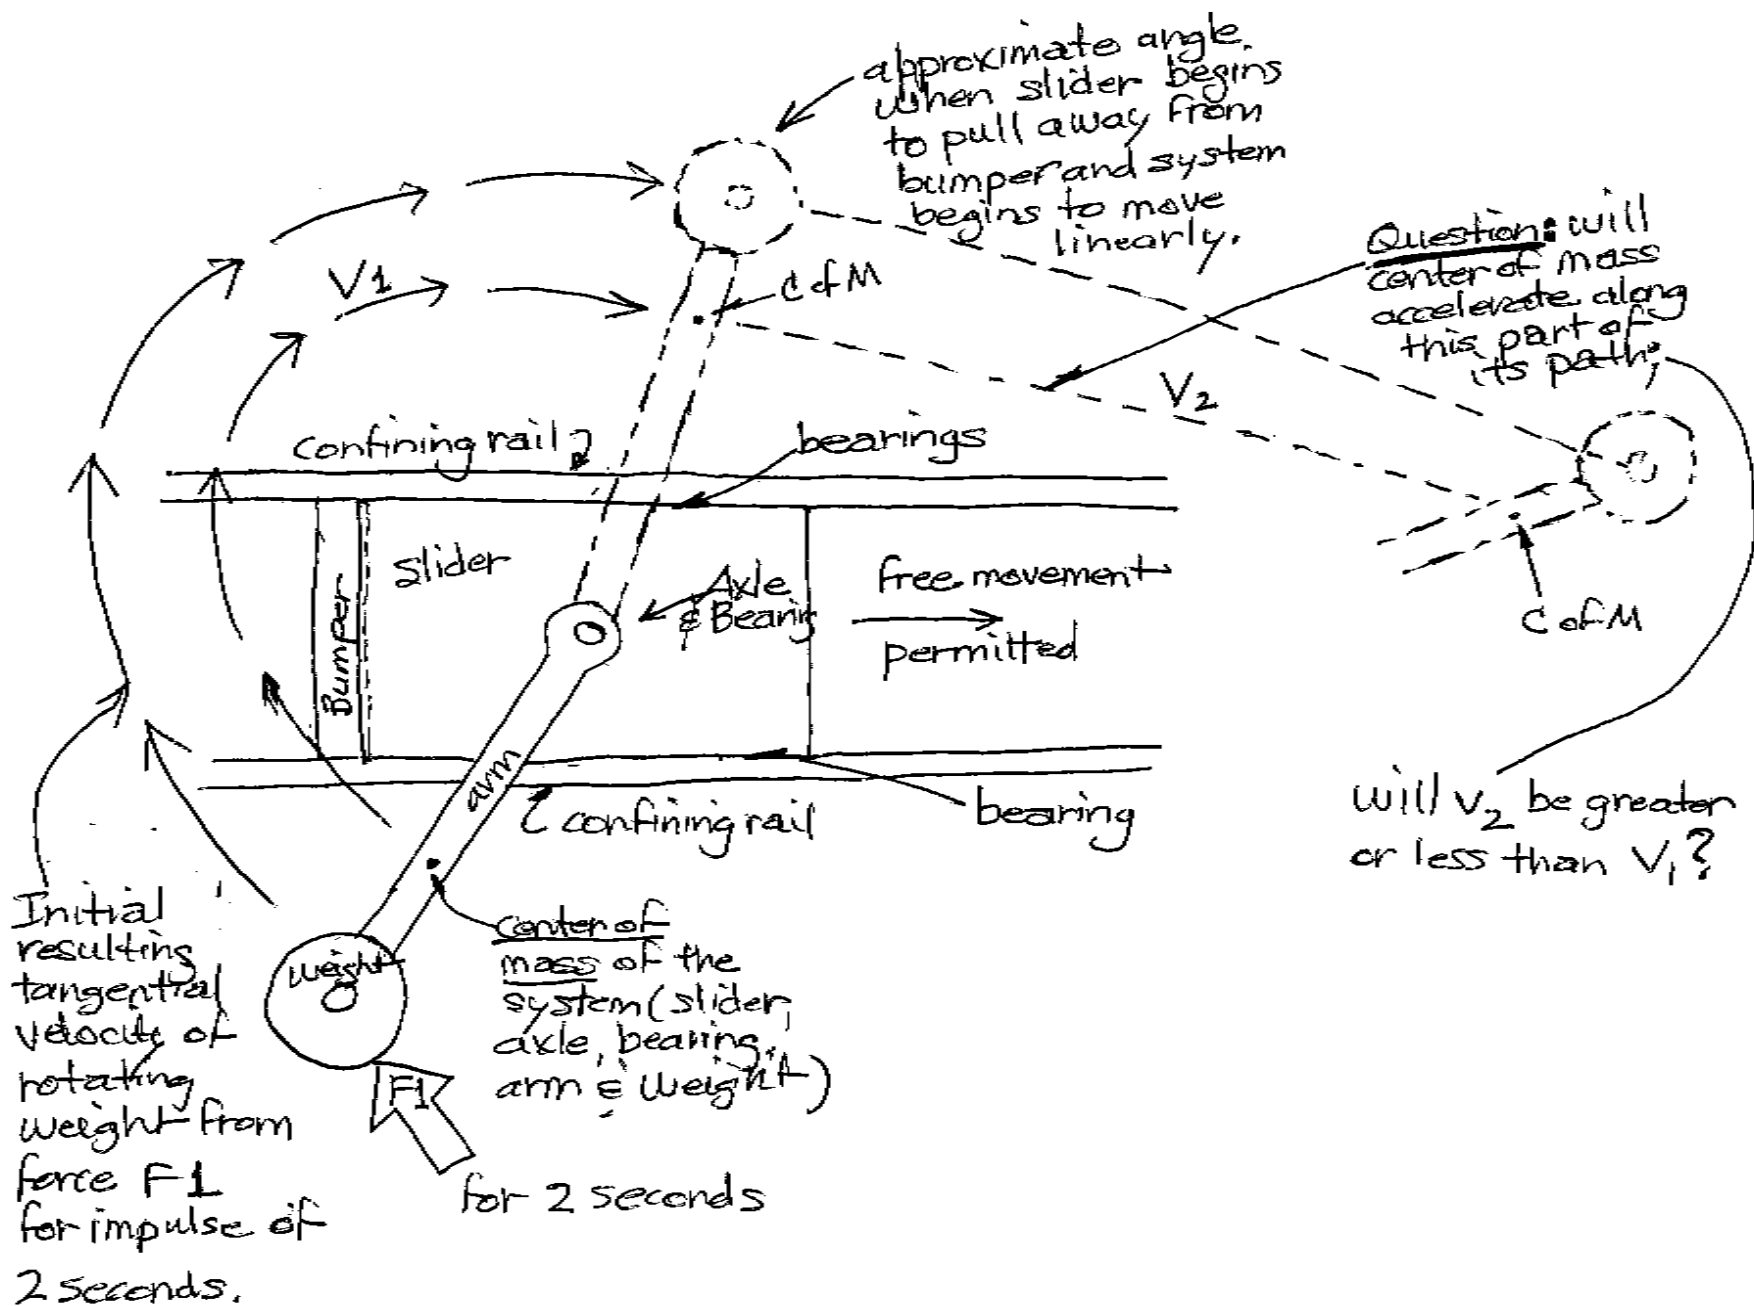 approximate angle
when slider begins
to pull away from
bumper and system
begins to move
linearly.
Question: will
center of mass
accelerate along
this part of
its path;
V1
C of M
V2
confining rail
bearings
Slider
Bumper
Axle
& Bearing
free movement
permitted
C of M
arm
confining rail
bearing
will V2 be greater
or less than V1?
Initial
resulting
tangential
velocity of
rotating
weight from
force F1
for impulse of
2 seconds.
weight
center of
mass of the
system (slider,
axle, bearing,
arm & weight)
F1
for 2 seconds